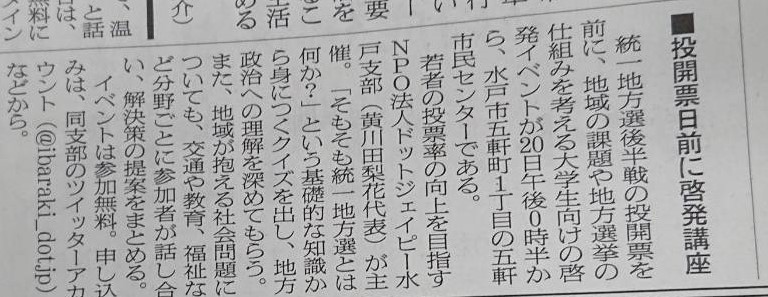 ■投開票日前に啓発講座
統一地方選後半戦の投開票を
前に、地域の課題や地方選挙の
仕組みを考える大学生向けの啓
発イベントが20日午後0時半か
ら、水戸市五軒町1丁目の五軒
市民センターである。
若者の投票率の向上を目指す
NPO法人ドットジェイピー水
戸支部（黄川田梨花代表）が主
催。「そもそも統一地方選とは
何か？」という基礎的な知識か
ら身につくクイズを出し、地方
政治への理解を深めてもらう。
また、地域が抱える社会問題に
ついても、交通や教育、福祉な
ど分野ごとに参加者が話し合
い、解決策の提案をまとめる。
イベントは参加無料。申し込
みは、同支部のツイッターアカ
ウント（@ibaraki_dotjp）
などから。
要
るこ
生活
める
介）
、温
と話
無料に
メイン